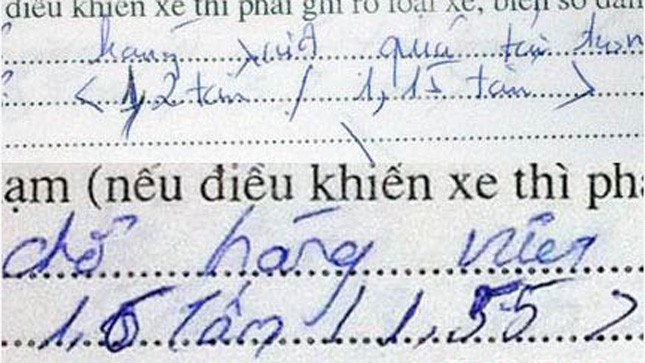 điều khiển xe thì phải ghi rõ loại xe, biển số đăn
hàng vượt quá tải
< 1,2 tấn / 1,15 tấn >
ạm (nếu điều khiển xe thì phả
chở hàng vượt
1,6 tấn / 1,55 >